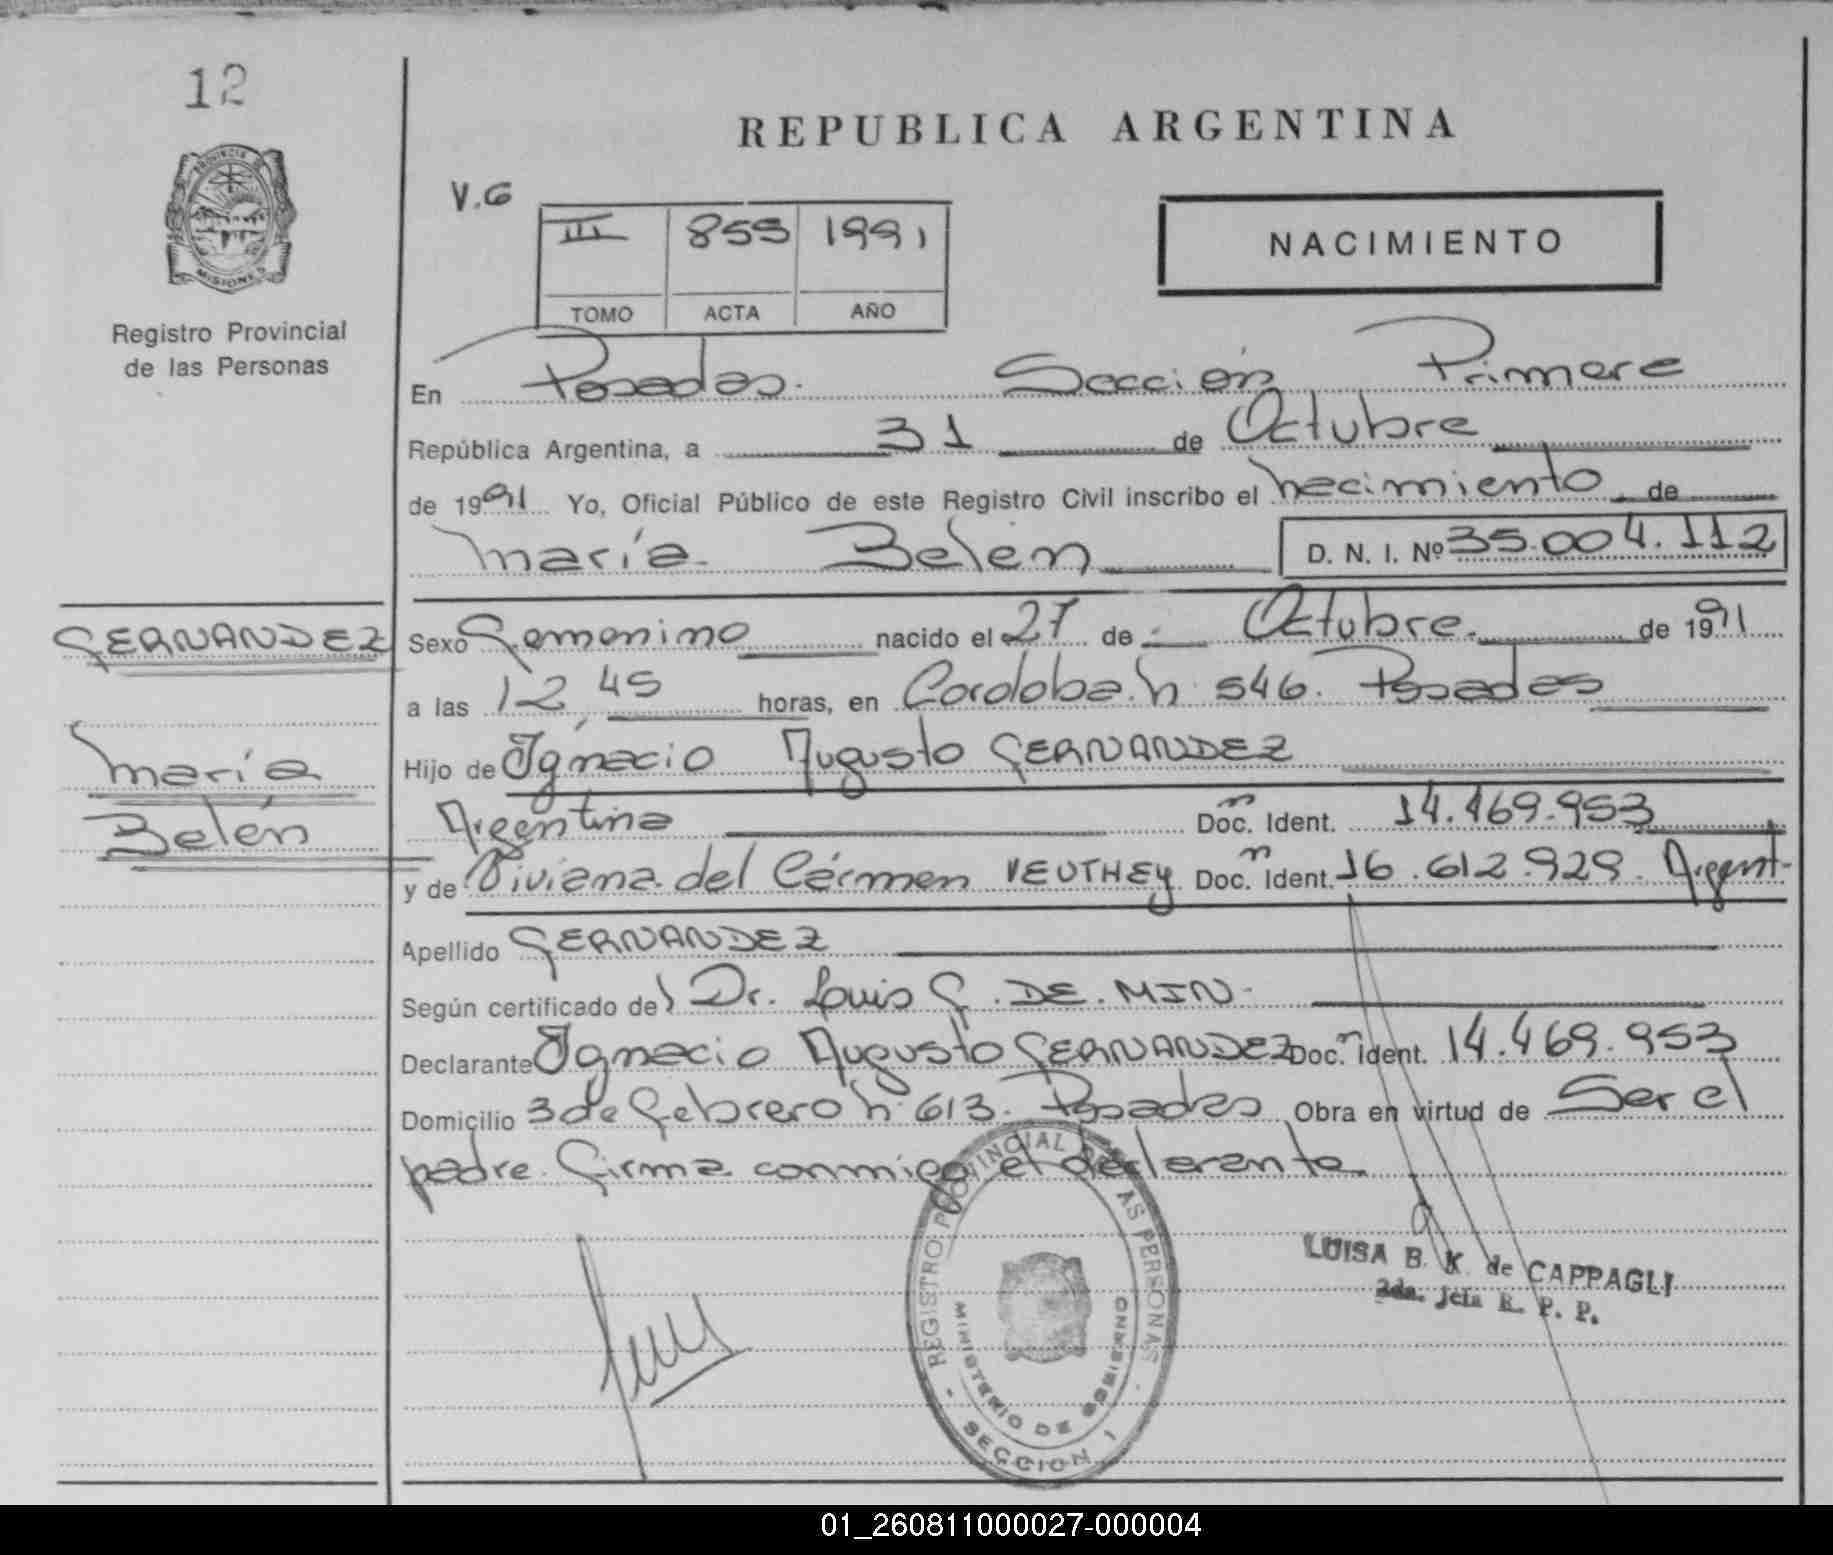 12
REPUBLICA ARGENTINA
V.G
III 859 1991
TOMO ACTA AÑO
NACIMIENTO
PROVINCIA DE
MISIONES
Registro Provincial
de las Personas
En Posadas. Sección Primera
República Argentina, a 31 de Octubre
de 1991 Yo, Oficial Público de este Registro Civil inscribo el nacimiento de
María Belén D. N. I. Nº 35.004.112
FERNANDEZ
María
Belén
Sexo Femenino nacido el 27 de Octubre. de 1991
a las 12,45 horas, en Cordoba. n: 546. Posadas
Hijo de Ignacio Augusto FERNANDEZ
Argentina Doc. Ident. 14.469.953
y de Viviana del Cármen VEUTHEY Doc. Ident. 16.612.929. Argent-
Apellido FERNANDEZ
Según certificado del Dr. Luis F. DE. MIN-
Declarante Ignacio Augusto FERNANDEZ Doc. Ident. 14.469.953
Domicilio 3 de Febrero n: 613. Posadas Obra en virtud de Ser el
padre. Firma conmigo el declarante.
REGISTRO PROVINCIAL DE LAS PERSONAS
MINISTERIO DE GOBIERNO
SECCION 1
LUISA B. K. de CAPPAGLI
2da. Jefa R. P. P.
01_260811000027-000004